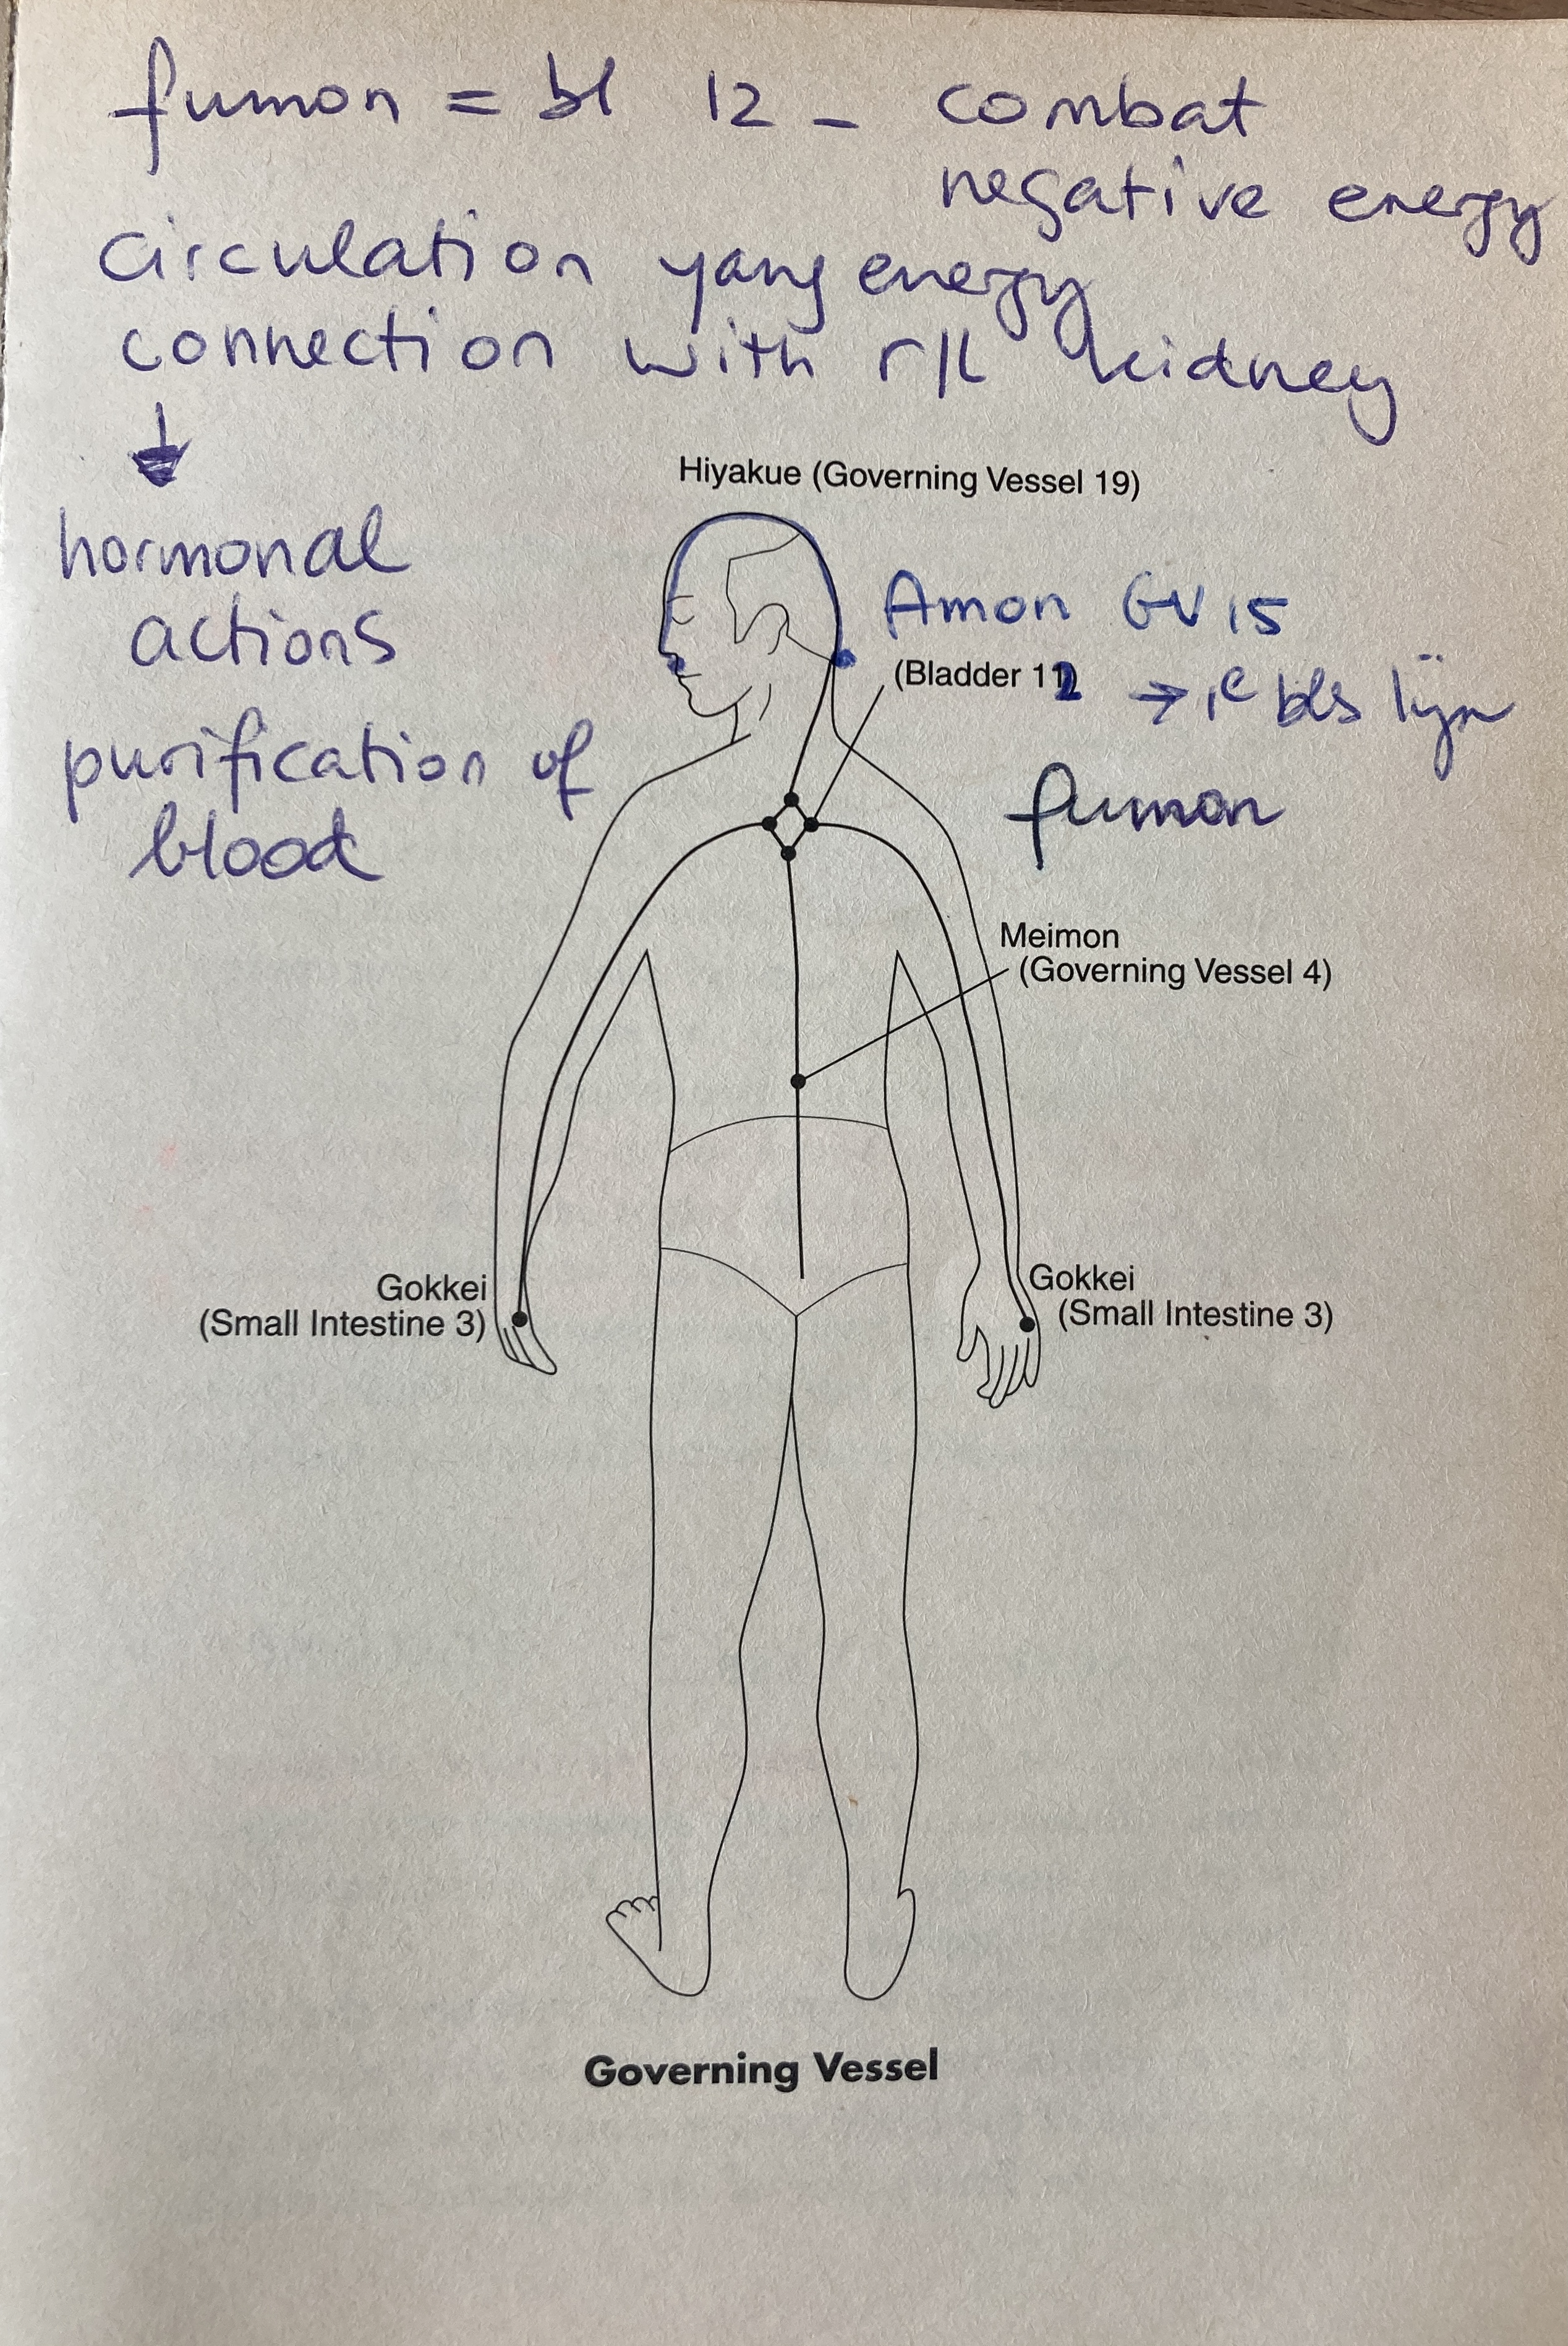 fumon = bl 12 - combat
negative energy
circulation yang energy
connection with r/L kidney
hormonal
actions
purification of
blood
Hiyakue (Governing Vessel 19)
Amon GV 15
(Bladder 12 → 1e bls lijn
fumon
Meimon
(Governing Vessel 4)
Gokkei
(Small Intestine 3)
Gokkei
(Small Intestine 3)
Governing Vessel